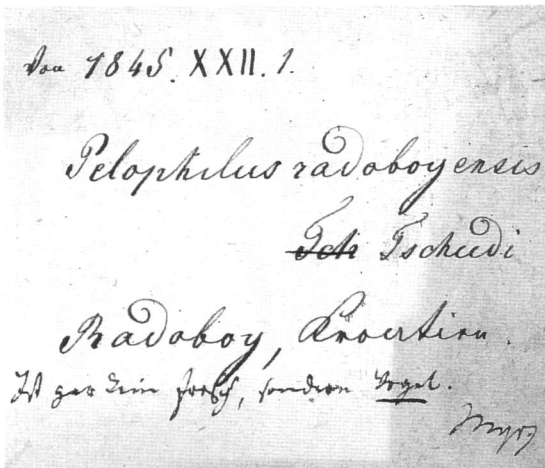 Von 1845. XXII. 1.
Pelophilus radoboyensis
Tsch Tschudi
Radoboy, Kroatien.
Ist gar kein Frosch, sondern Vogel.